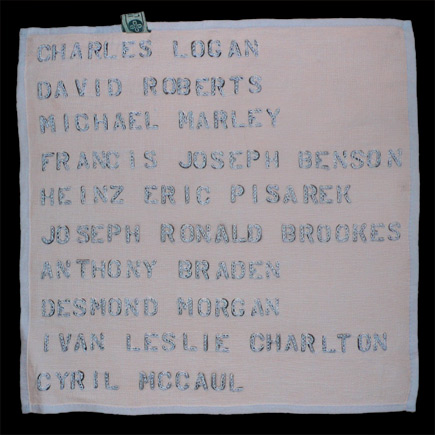 CHARLES LOGAN
DAVID ROBERTS
MICHAEL MARLEY
FRANCIS JOSEPH BENSON
HEINZ ERIC PISAREK
JOSEPH RONALD BROOKES
ANTHONY BRADEN
DESMOND MORGAN
IVAN LESLIE CHARLTON
CYRIL MCCAUL